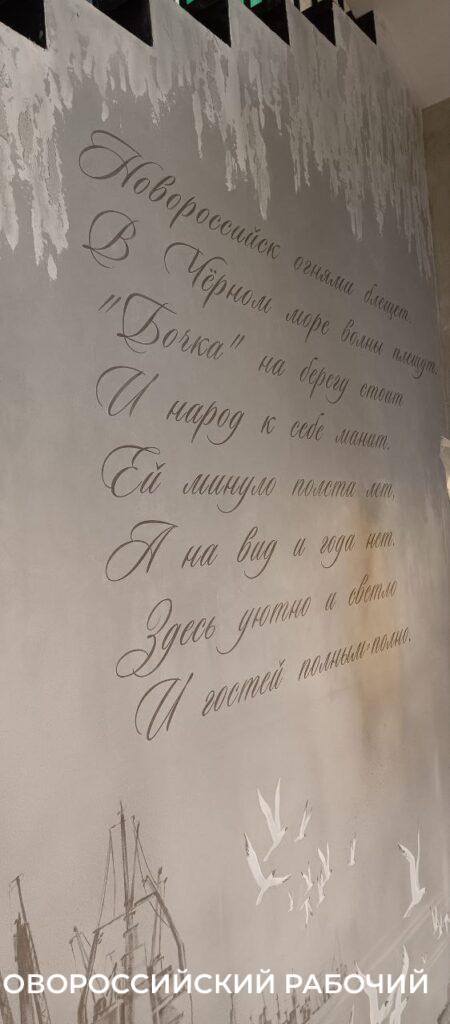 Новороссийск огнями блещет.
В Чёрном море волны плещут.
"Бочка" на берегу стоит
И народ к себе манит.
Ей минуло полста лет,
А на вид и года нет.
Здесь уютно и светло
И гостей полным-полно.
ОВОРОССИЙСКИЙ РАБОЧИЙ